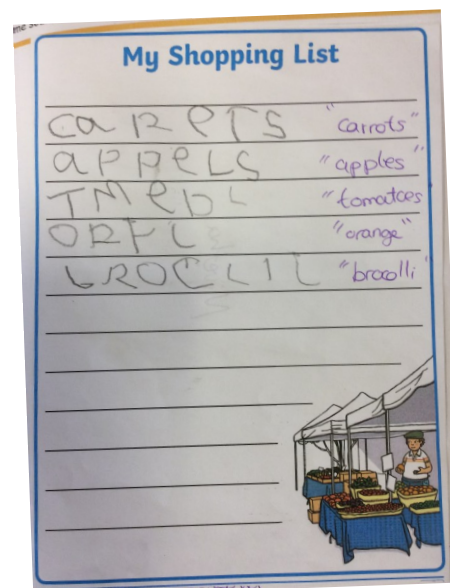 My Shopping List
caRePTS "carrots"
aPPeLS "apples"
TMe "tomatoes
ORFL "orange"
bROCLIL "brocolli"